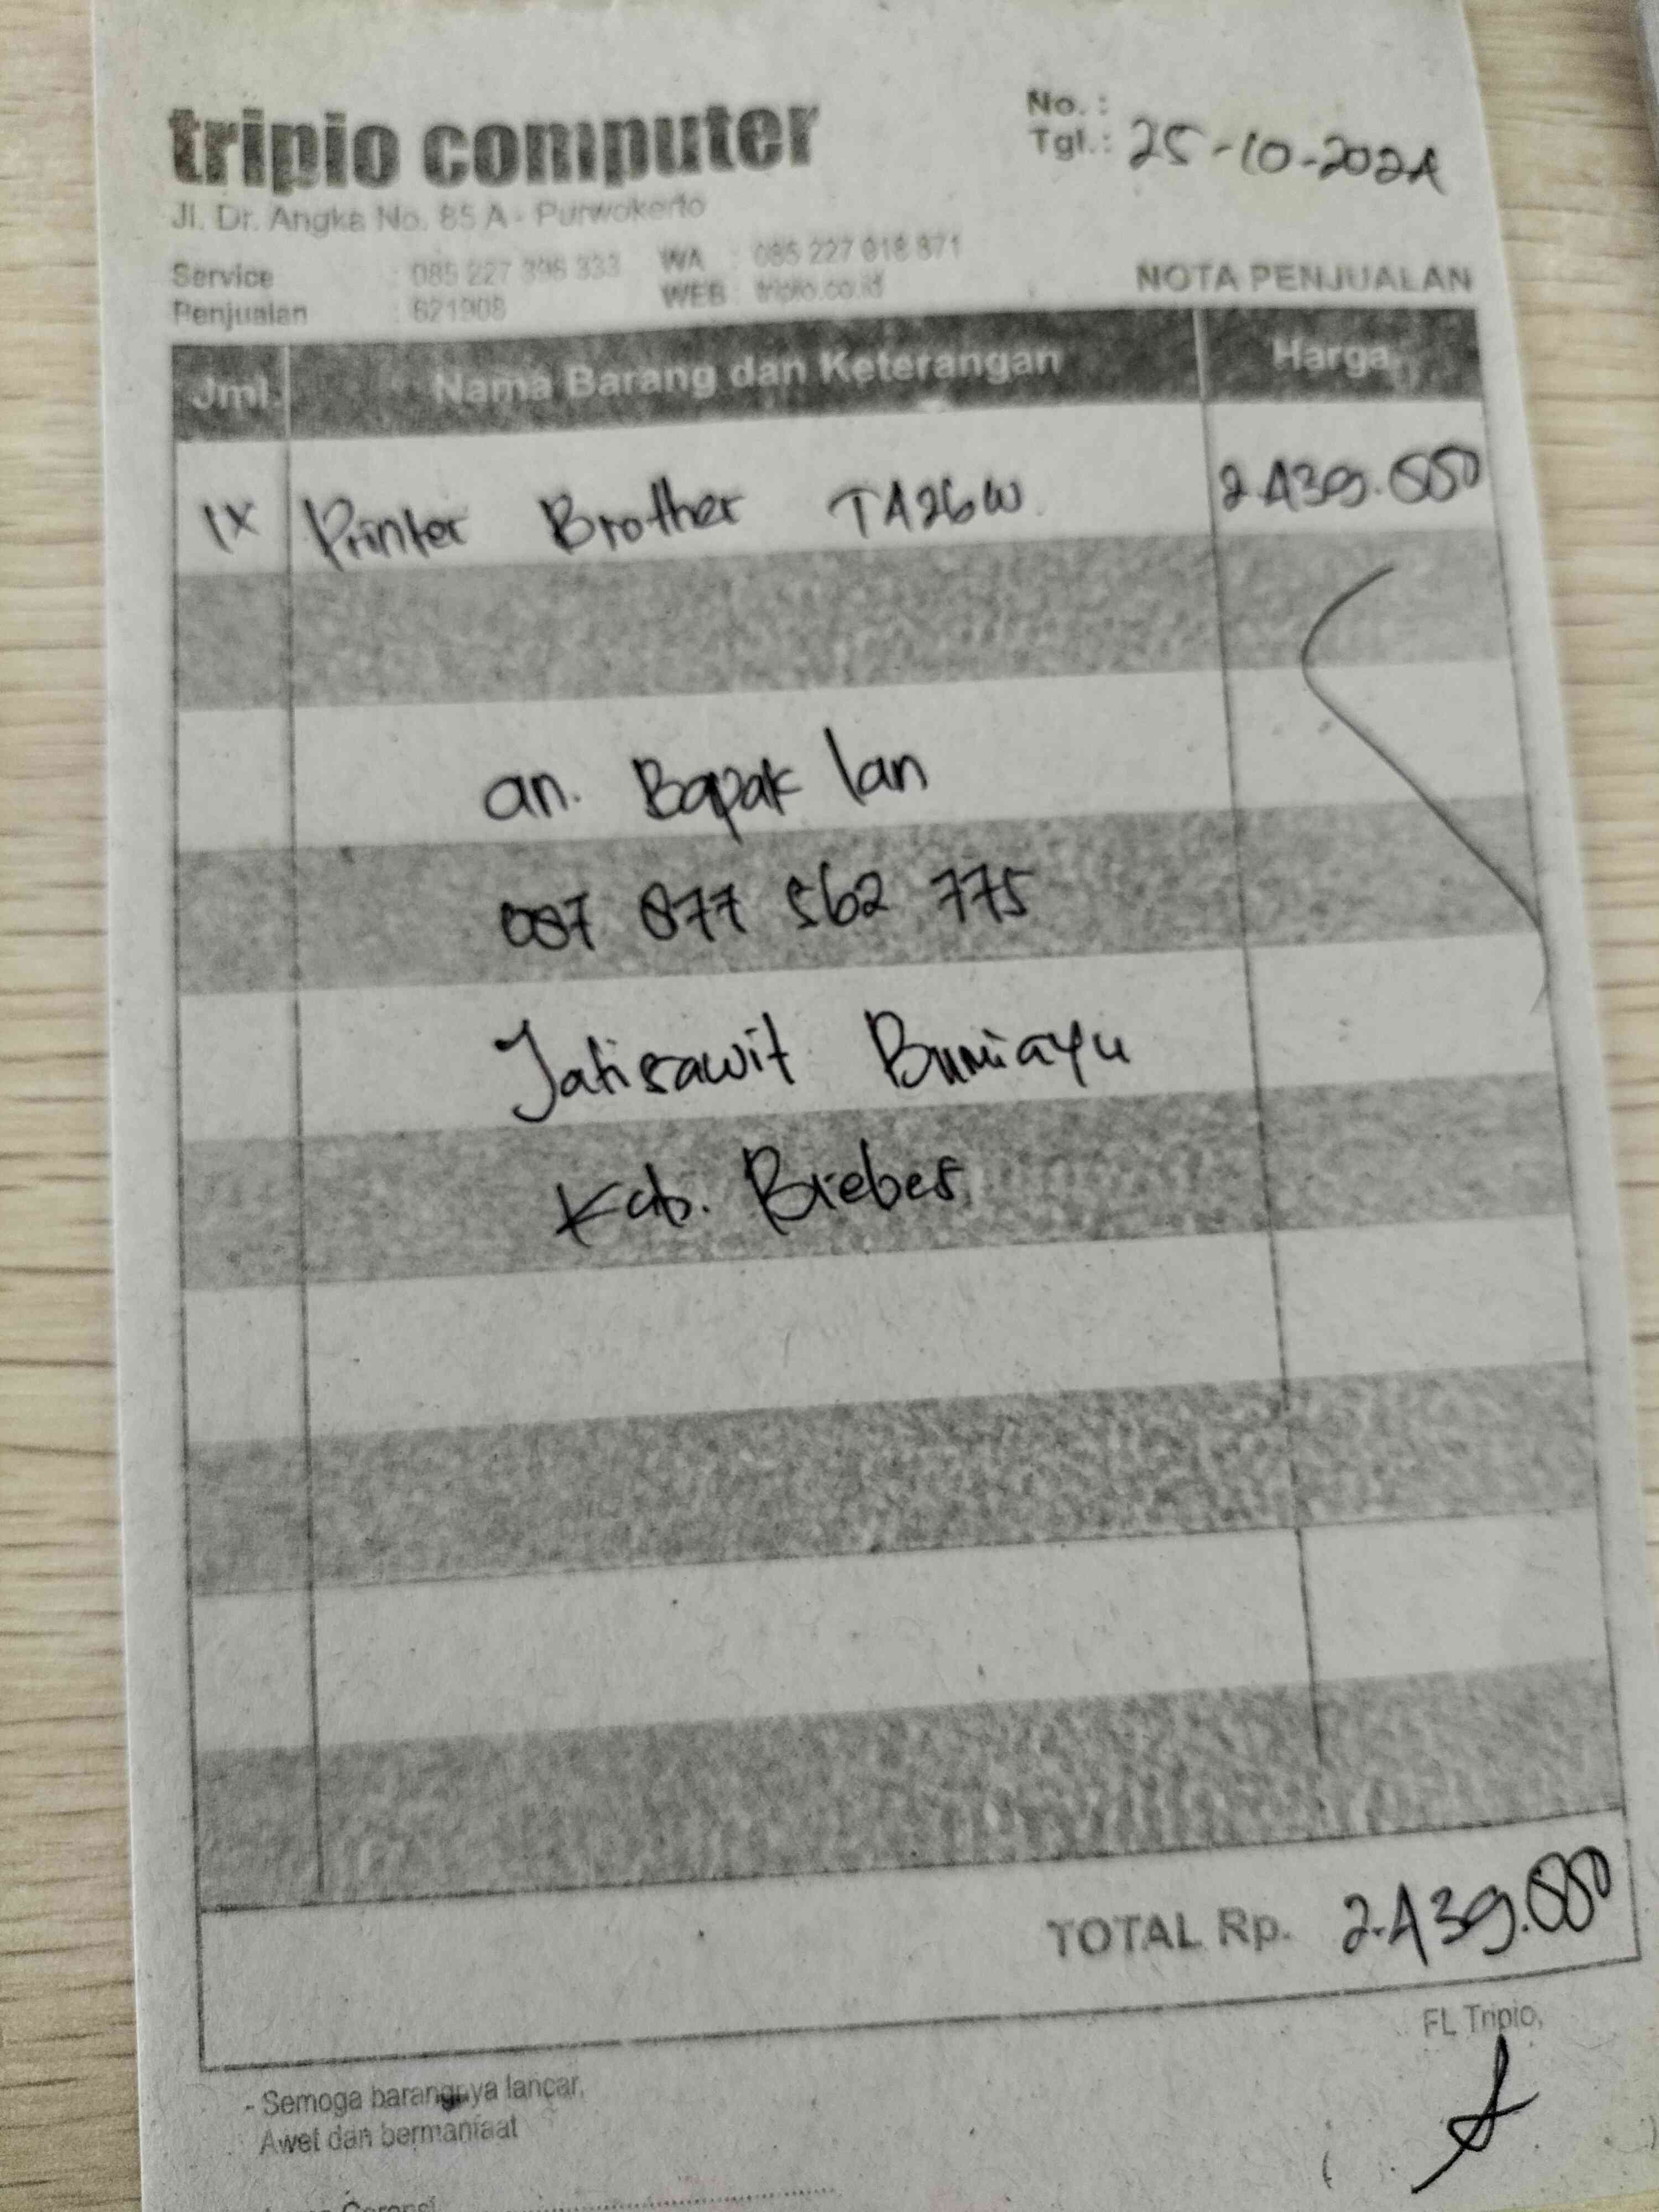 tripio computer
No. :
Tgl. : 25-10-2024
Jl. Dr. Angka No. 85 A - Purwokerto
Service : 085 227 396 333 WA : 085 227 818 871
Penjualan : 621908 WEB : tripio.co.id
NOTA PENJUALAN
Jml. Nama Barang dan Keterangan Harga
1x Printer Brother T426W 2.439.000
an. Bapak Ian
087 877 562 775
Jatisawit Bumiayu
Kab. Brebes
TOTAL Rp. 2.439.000
FL Tripio,
- Semoga barangnya lancar,
Awet dan bermanfaat